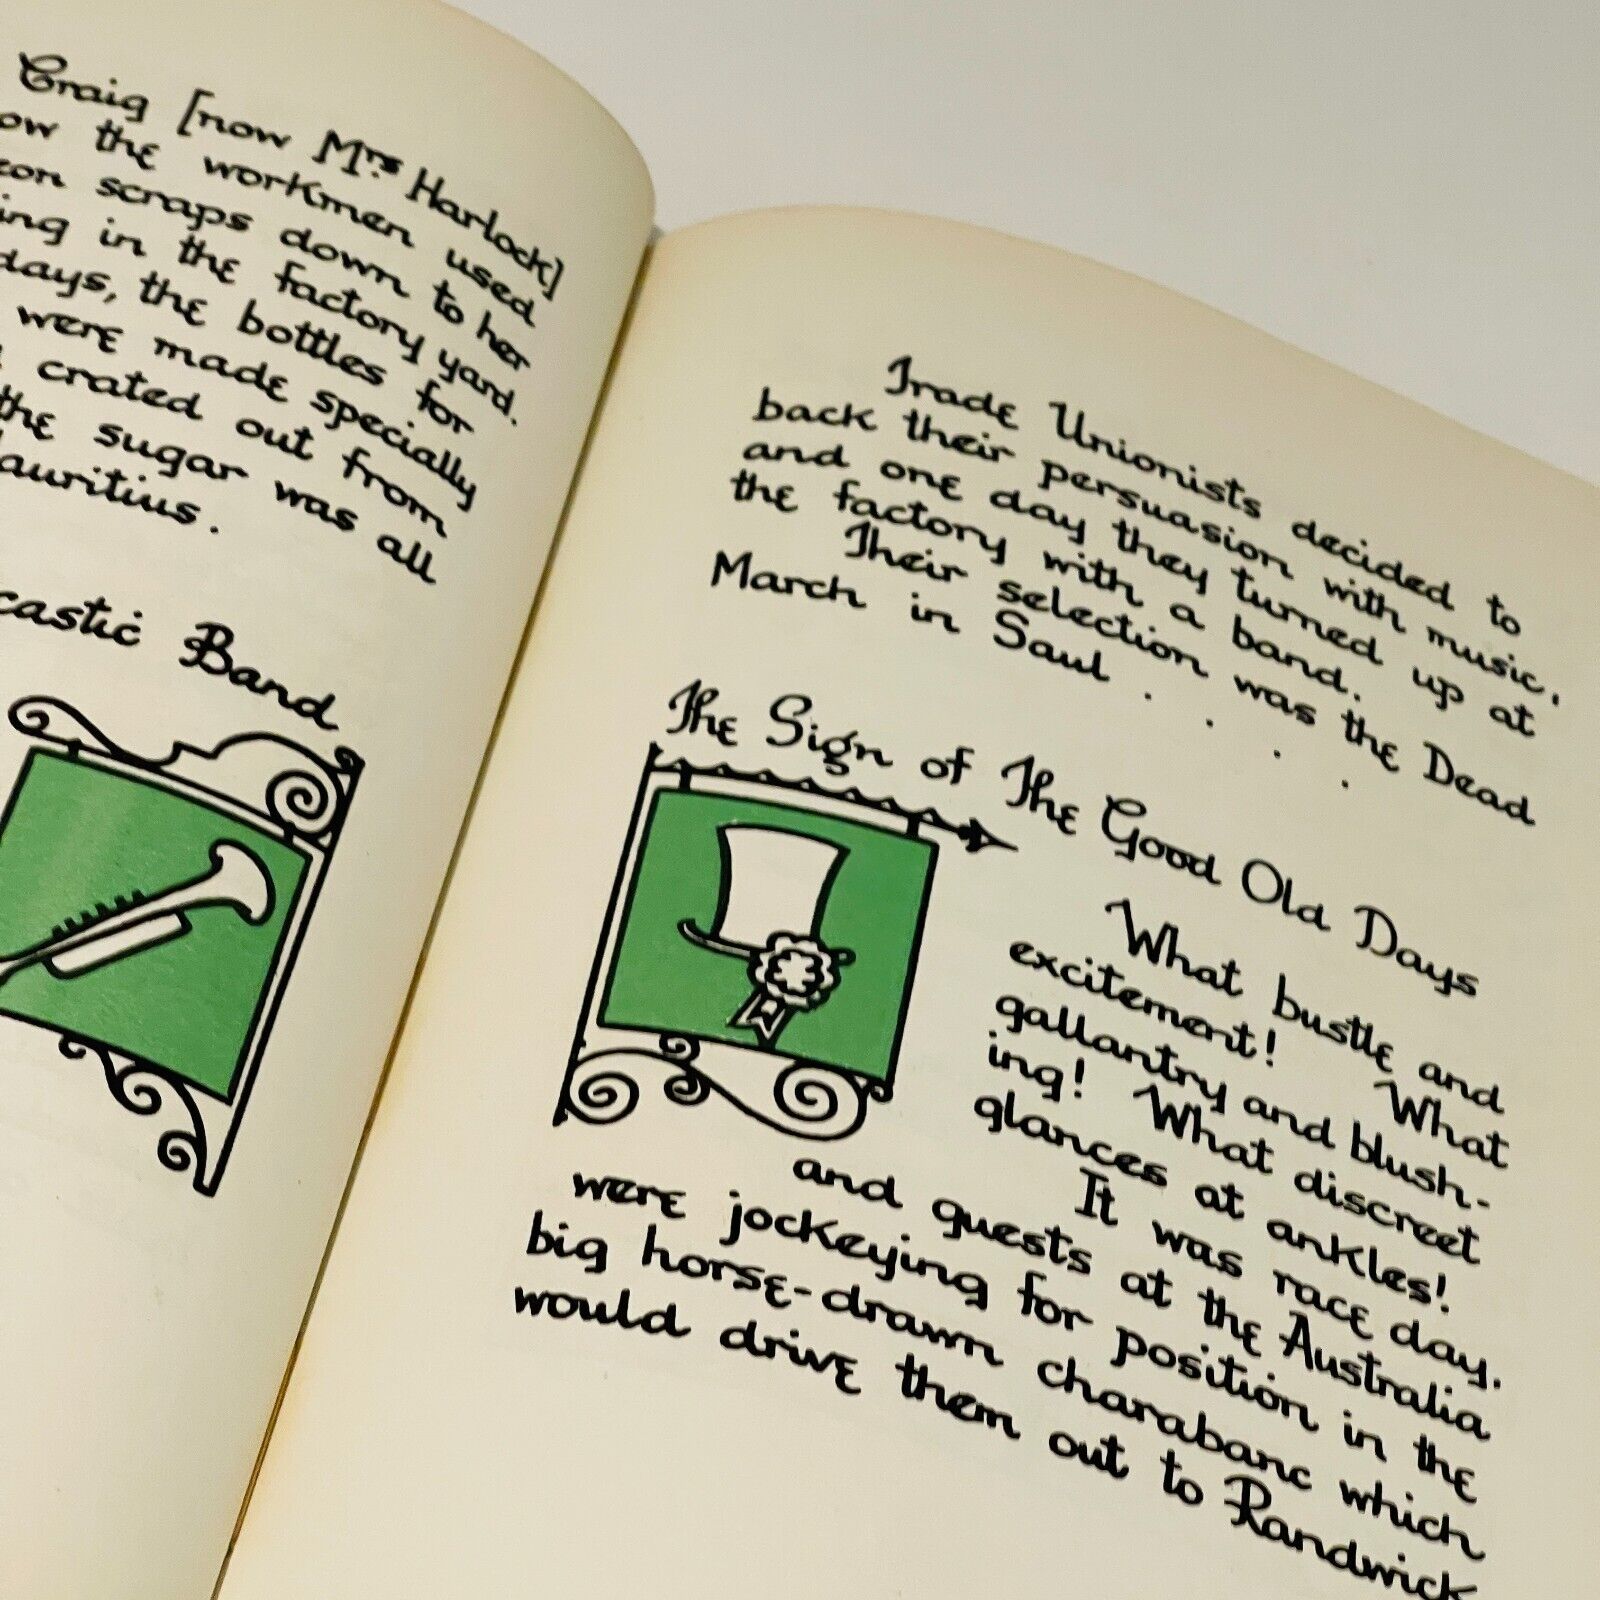 Craig [now Mrs. Harlock]
the workmen used
scraps down to her
in the factory yard.
days, the bottles for
were made specially
crated out from
the sugar was all
Band
Trade Unionists decided to
back their persuasion with music,
and one day they turned up at
the factory with a band.
Their selection was the Dead
March in Saul . . . .
The Sign of The Good Old Days
What bustle and
excitement! What
gallantry and blush-
ing! What discreet
glances at ankles!
It was race day,
and guests at the Australia
were jockeying for position in the
big horse-drawn charabanc which
would drive them out to Randwick